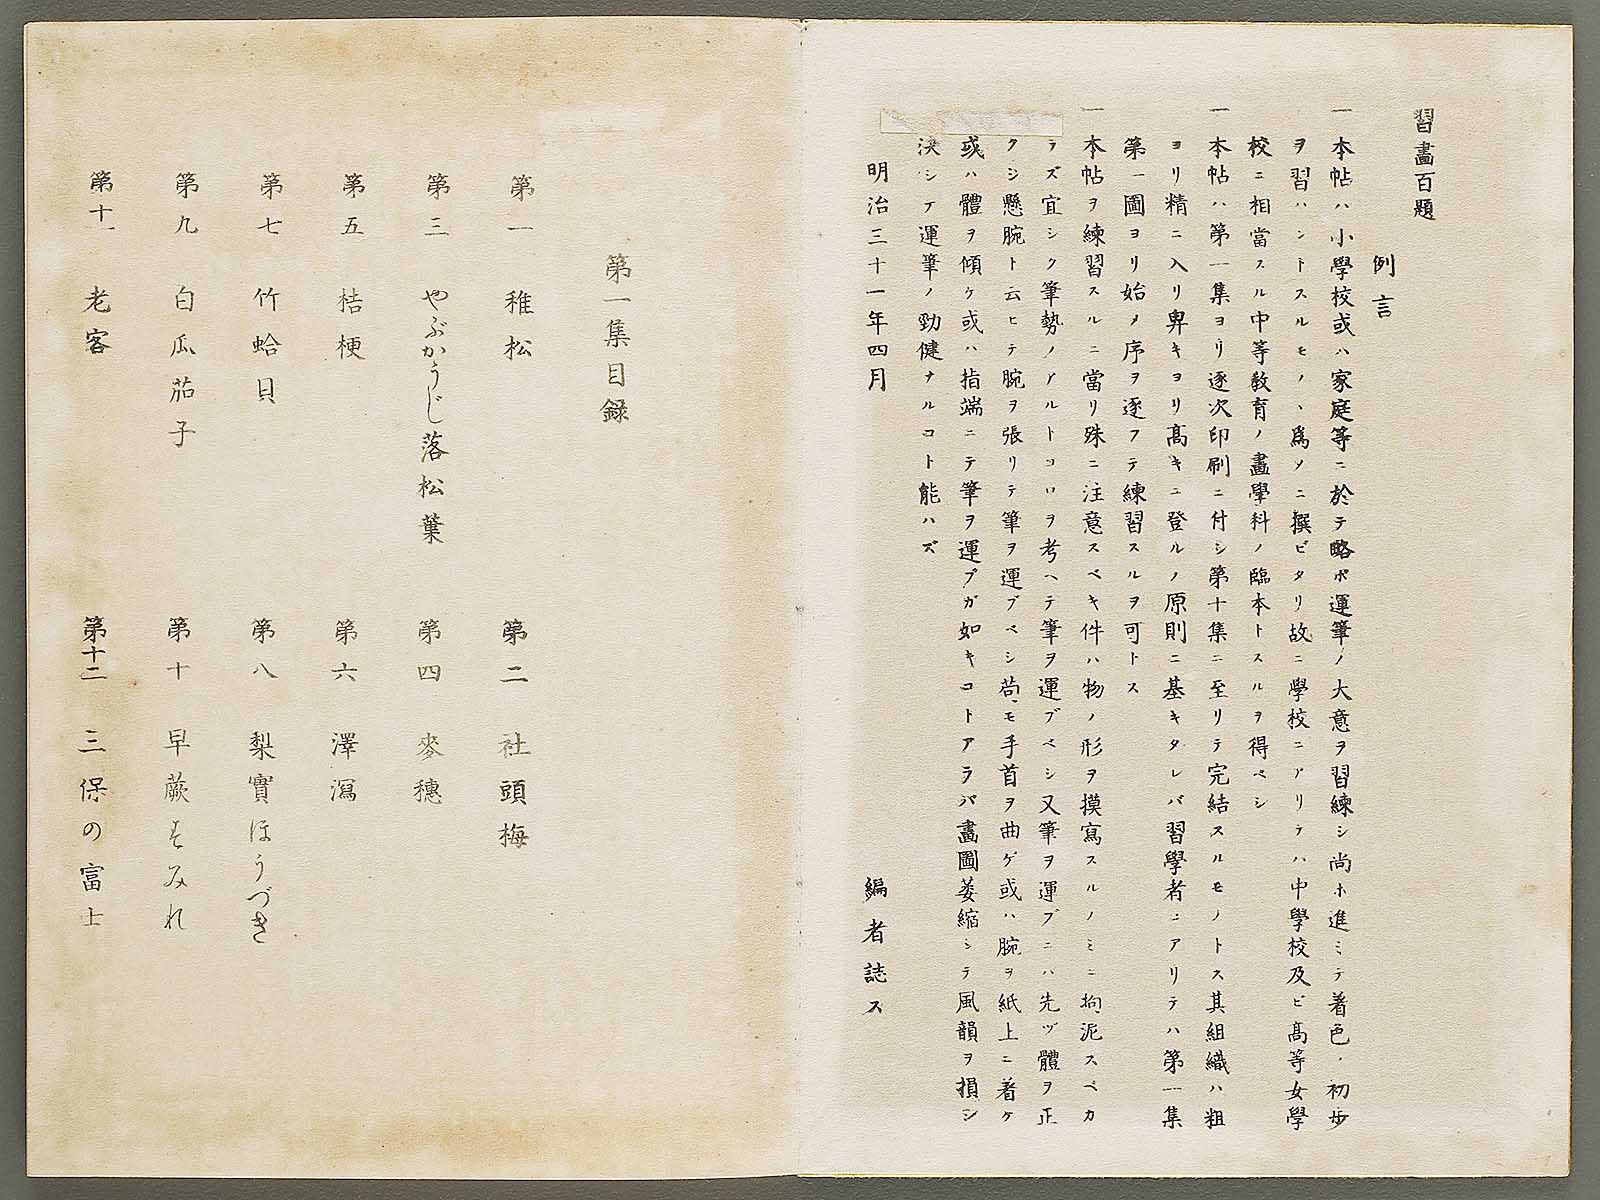 習畫百題
例言
一本帖ハ小學校或ハ家庭等ニ於テ略ボ運筆ノ大意ヲ習練シ尚ホ進ミテ着色ノ初歩
ヲ習ハントスルモノヽ爲メニ撰ビタリ故ニ學校ニアリテハ中學校及ビ高等女學
校ニ相當スル中等教育ノ畫學科ノ臨本トスルヲ得ベシ
一本帖ハ第一集ヨリ逐次印刷ニ付シ第十集ニ至リテ完結スルモノトス其組織ハ粗
ヨリ精ニ入リ卑キヨリ高キニ登ルノ原則ニ基キタレバ習學者ニアリテハ第一集
第一圖ヨリ始メ序ヲ逐フテ練習スルヲ可トス
一本帖ヲ練習スルニ當リ殊ニ注意スベキ件ハ物ノ形ヲ摸寫スルノミニ拘泥スベカ
ラズ宜シク筆勢ノアルトコロヲ考ヘテ筆ヲ運ブベシ又筆ヲ運ブニハ先ヅ體ヲ正
クシ懸腕ト云ヒテ腕ヲ張リテ筆ヲ運ブベシ苟モ手首ヲ曲ゲ或ハ腕ヲ紙上ニ着ケ
或ハ體ヲ傾ケ或ハ指端ニテ筆ヲ運ブガ如キコトアラバ畫圖萎縮シテ風韻ヲ損シ
決シテ運筆ノ勁健ナルコト能ハズ
明治三十一年四月
編者誌ス
第一集目録
第一 稚松
第二 社頭梅
第三 やぶかうじ落松葉
第四 麥穗
第五 桔梗
第六 澤瀉
第七 竹蛤貝
第八 梨實ほうづき
第九 白瓜茄子
第十 早蕨すみれ
第十一 老客
第十二 三保の富士